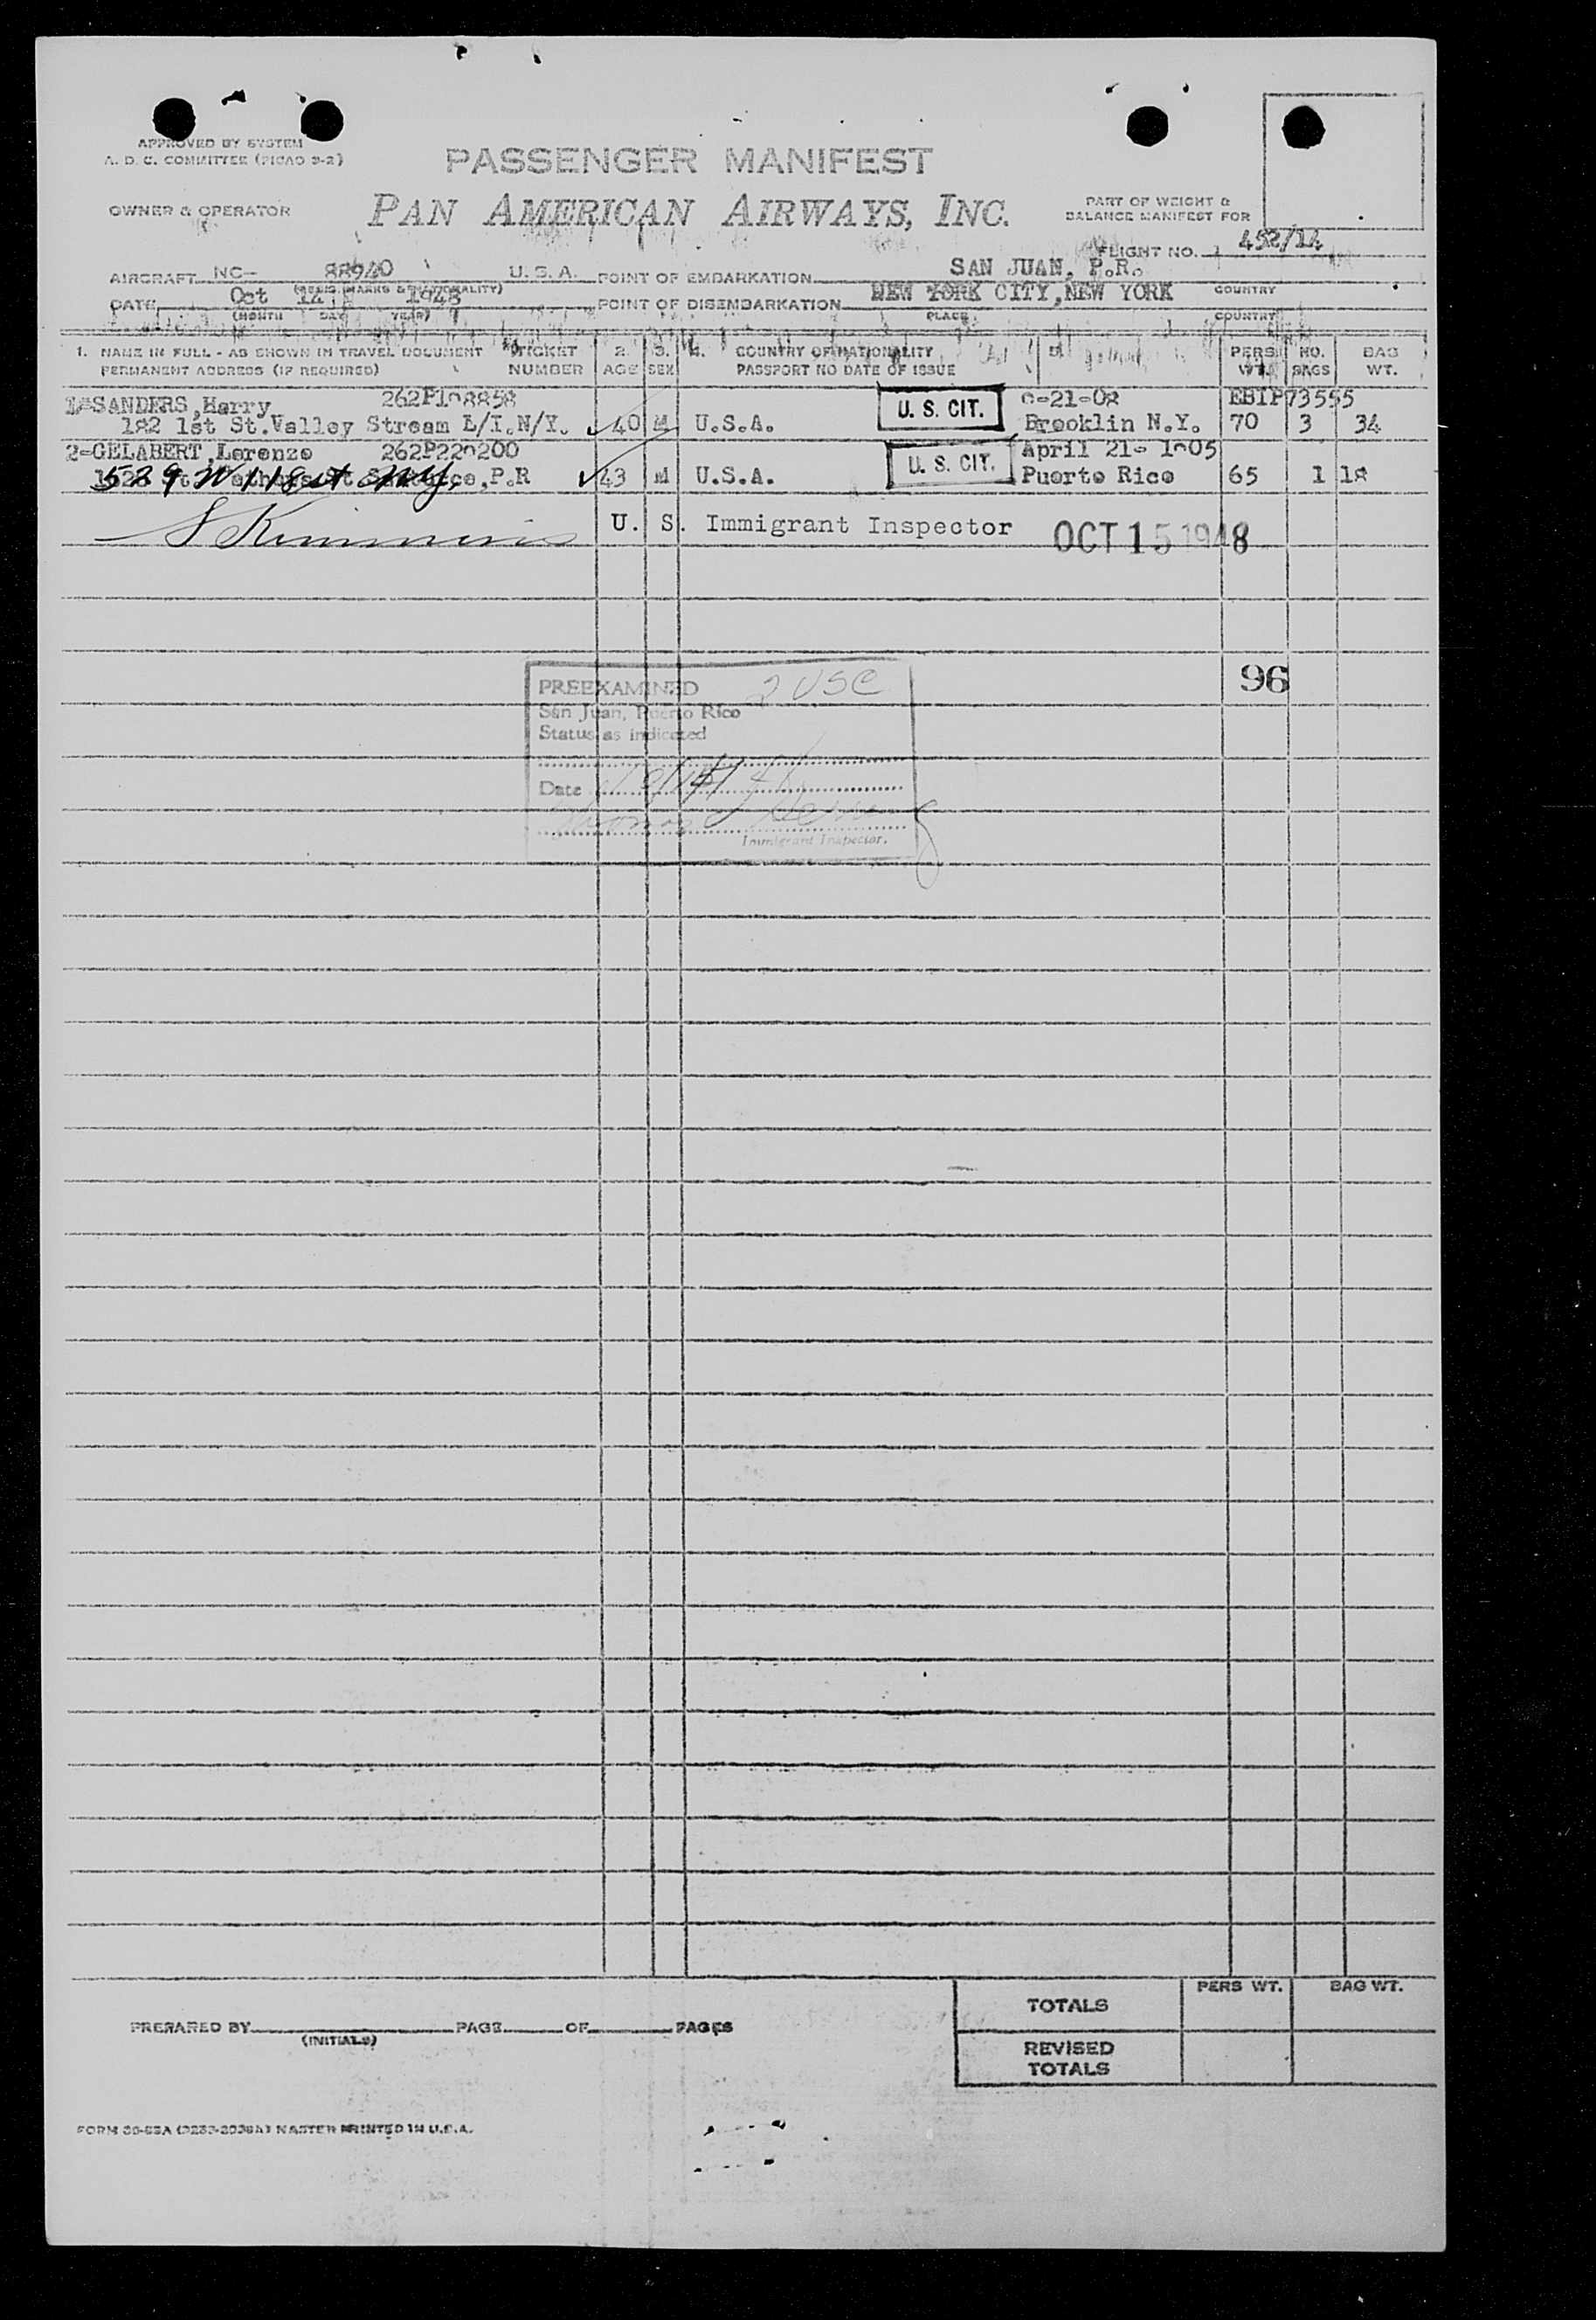 APPROVED BY SYSTEM
A. D. C. COMMITTEE (PICAO 9-2)
PASSENGER MANIFEST
OWNER & OPERATOR
PAN AMERICAN AIRWAYS, INC.
PART OF WEIGHT &
BALANCE MANIFEST FOR
FLIGHT NO. 452/14
AIRCRAFT NC- 88940 U. S. A. POINT OF EMBARKATION SAN JUAN, P.R.
COUNTRY
DATE Oct 14 1948 POINT OF DISEMBARKATION NEW YORK CITY, NEW YORK
(MONTH DAY YEAR) PLACE COUNTRY
1. NAME IN FULL - AS SHOWN IN TRAVEL DOCUMENT TICKET 2. 3. 4. COUNTRY OF NATIONALITY 5. PERS. NO. BAG
PERMANENT ADDRESS (IF REQUIRED) NUMBER AGE SEX PASSPORT NO DATE OF ISSUE WT. BAGS WT.
1-SANDERS, Harry U. S. CIT. EBIP73555
182 1st St. Valley Stream L/I. N/Y. 40 M U.S.A. Brooklin N.Y. 70 3 34
2-GELABERT, Lorenzo U. S. CIT. April 21-
529 W 118 St N.Y. P.R 43 M U.S.A. Puerto Rico 65 1 18
U. S. Immigrant Inspector OCT 15 1948
96
PREEXAMINED 2 USC
San Juan, Puerto Rico
Status as indicated
Date 10/14/48
Thomas
Immigrant Inspector.
PERS WT. BAG WT.
TOTALS
PREPARED BY PAGE OF PAGES
(INITIALS)
REVISED
TOTALS
MASTER PRINTED IN U.S.A.